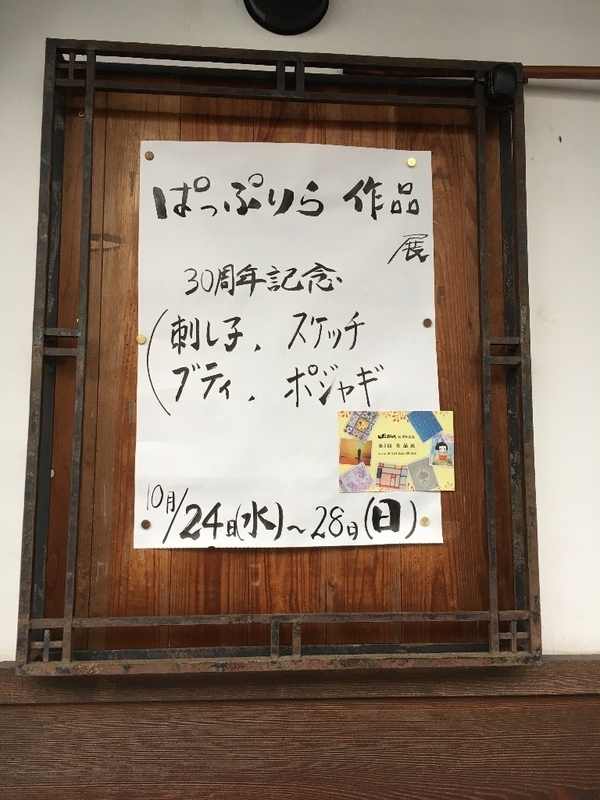 ぱっぷりら 作品
展
30周年記念
(刺し子, スケッチ
ブティ, ポジャギ
10月/24日(水)～28日(日)